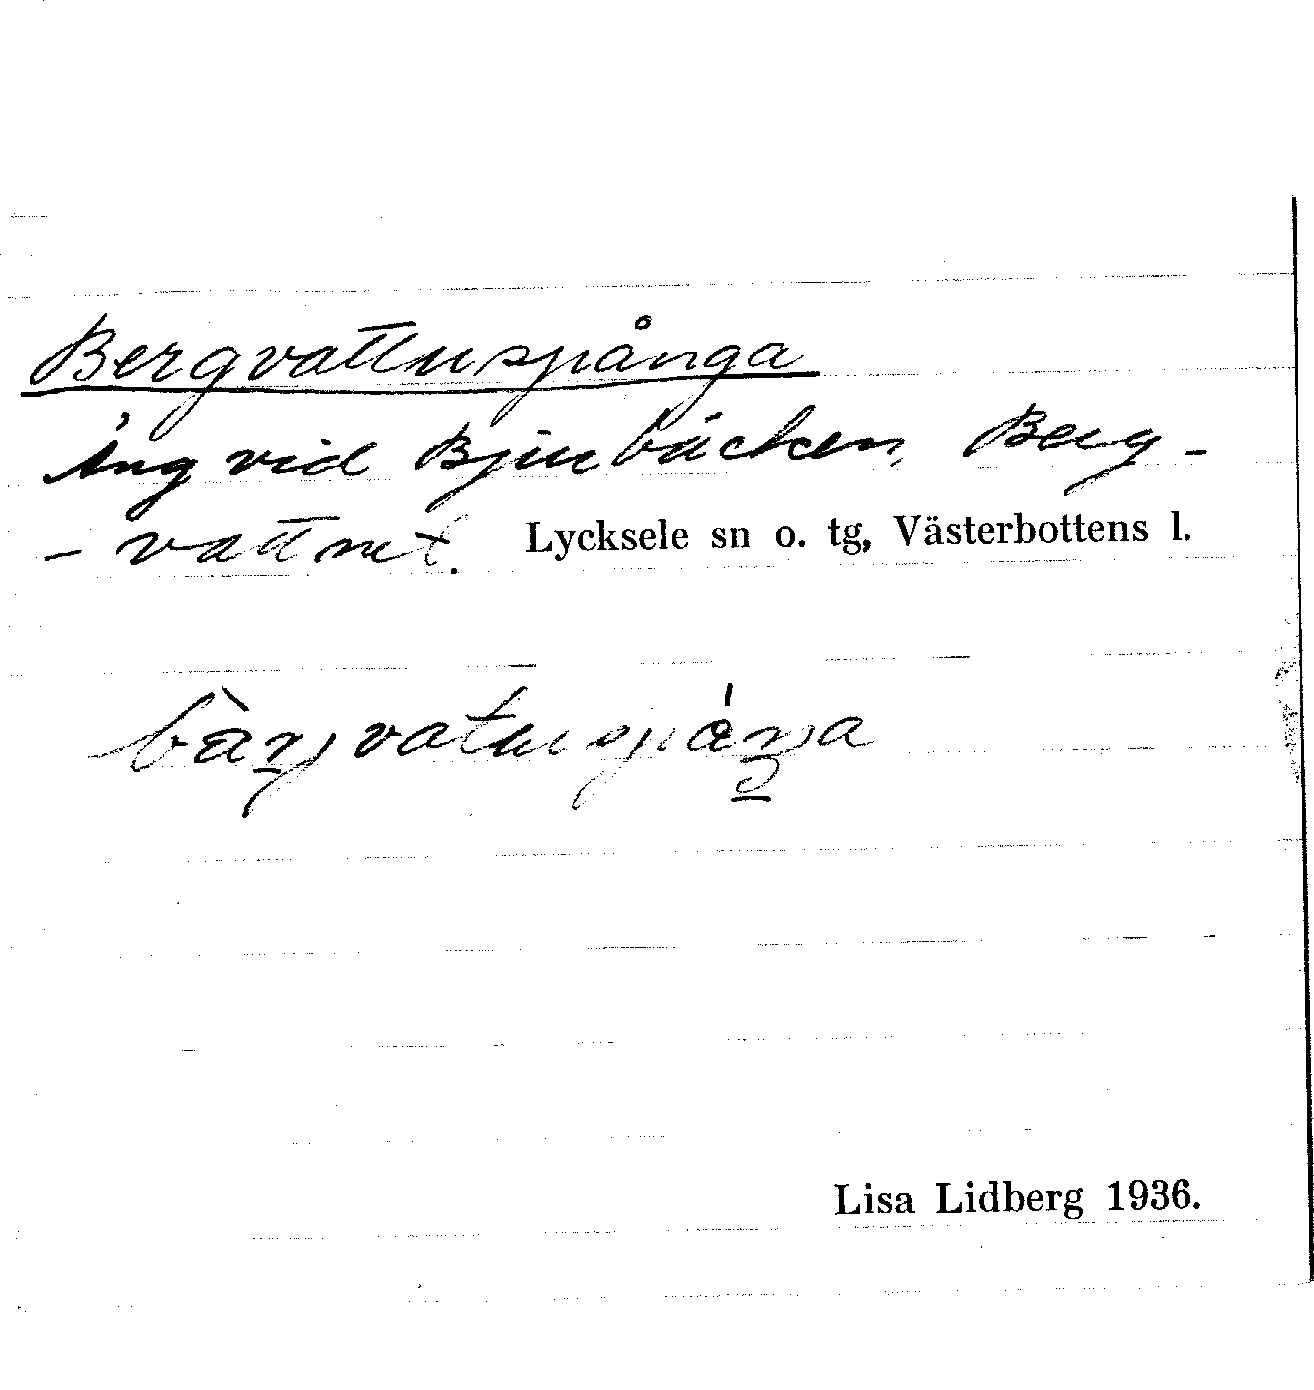 Bergvattnspånga
Äng vid Bjurbäcken, Berg-
- vattnet. Lycksele sn o. tg, Västerbottens l.
Lisa Lidberg 1936.